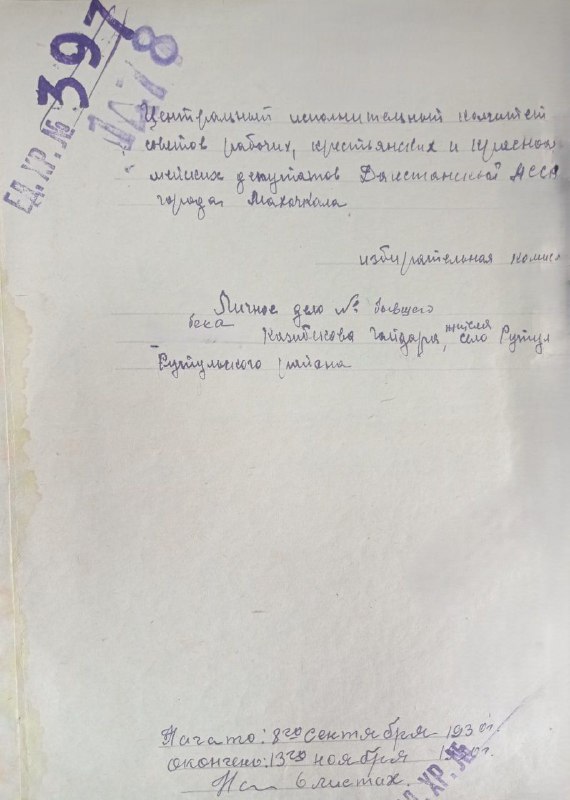 ЕД. ХР. № 397
1478
Центральный исполнительный комитет
советов рабочих, крестьянских и красноар
мейских депутатов Дагестанской АССР
города Махочкала
избирательная комис
Личное дело № бывшего
бека Казибекова Гайдара, жителя село Рутул
Рутульского района
Начато: 8го сентября 1930г.
окончено: 13го ноября г.
На 6 листах.
ЕД. ХР. №